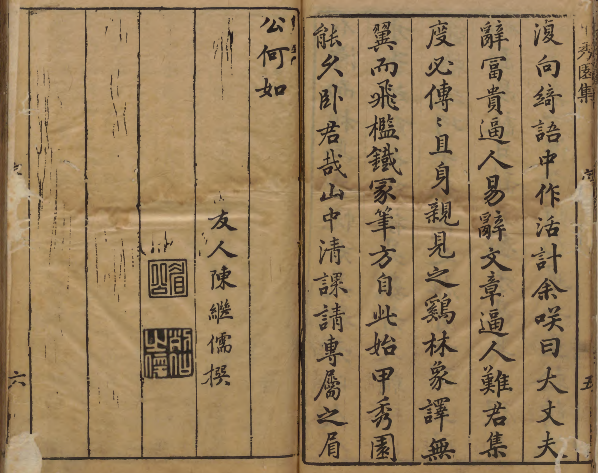 秀園集
五
復向綺語中作活計余咲曰大丈夫
辭冨貴逼人易辭文章逼人難君集
度必傳〻且身親見之鷄林象譯無
翼而飛檻鐵冢筆方自此始甲秀園
能久卧君哉山中清課請專屬之眉
公何如
友人陳繼儒撰
眉公
六